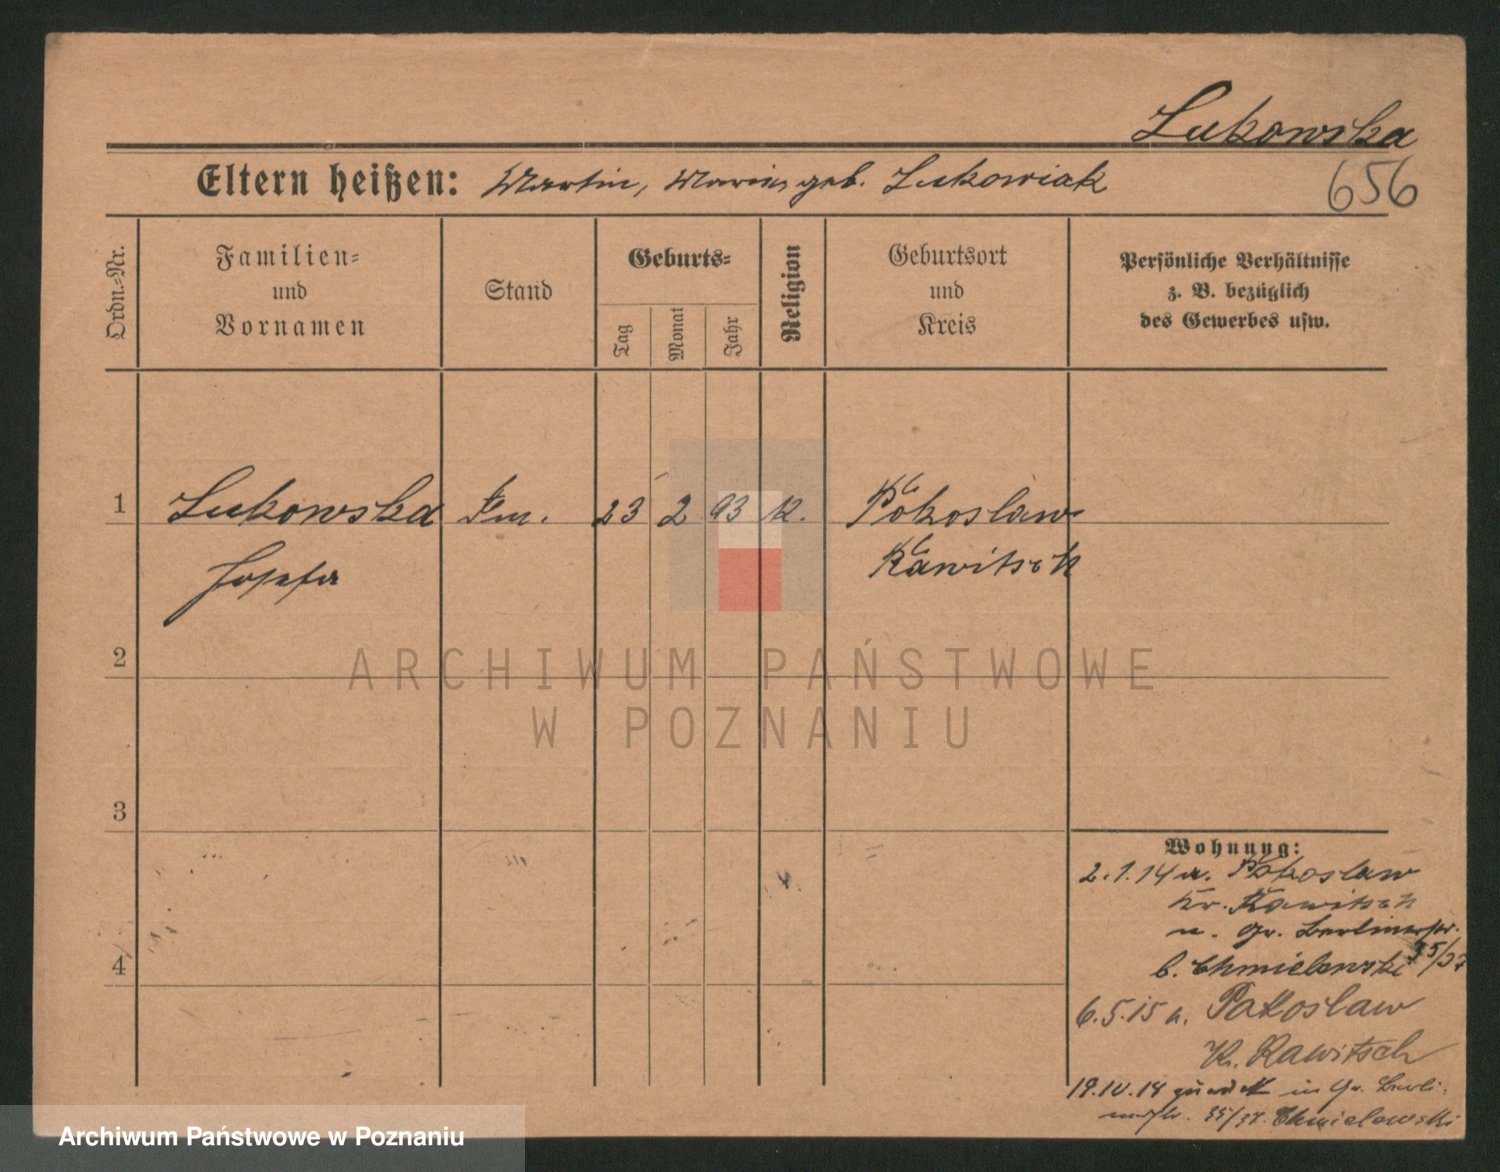 Lukowska
656
Eltern heißen: Martin, Maria geb. Lukowiak
Ordn.-Nr.
Familien-
und
Vornamen
Stand
Geburts-
Tag
Monat
Jahr
Religion
Geburtsort
und
Kreis
Persönliche Verhältnisse
z. B. bezüglich
des Gewerbes usw.
1 Lukowska 23 2 93 K. Pakoslaw
Josefa Rawitsch
2
3
4
ARCHIWUM PAŃSTWOWE
W POZNANIU
Wohnung:
2.1.14 a. Pakoslaw
Kr. Rawitsch
n. Gr. Berlinerstr.
b. Chmielewski 35/37
6.5.15 n. Pakoslaw
Kr. Rawitsch
19.10.18 zurück in Gr. Berli-
nerstr. Chmielewski
Archiwum Państwowe w Poznaniu